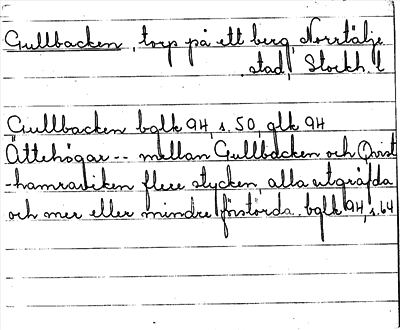 Gullbacken, torp på ett berg, Norrtälje
stad, Stockh. l
Gullbacken bglk 94, s. 50, glk 94
Ättehögar -- mellan Gullbacken och Qvist
-hamraviken flere stycken, alla utgräfda
och mer eller mindre förstörda. bglk 94, s. 64